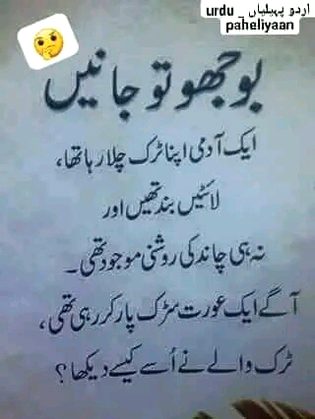 اردو پہیلیاں _ urdu
paheliyaan
بوجھو تو جانیں
ایک آدمی اپنا ٹرک چلا رہا تھا،
لائٹیں بند تھیں اور
نہ ہی چاند کی روشنی موجود تھی۔
آگے ایک عورت سڑک پار کر رہی تھی،
ٹرک والے نے اُسے کیسے دیکھا؟